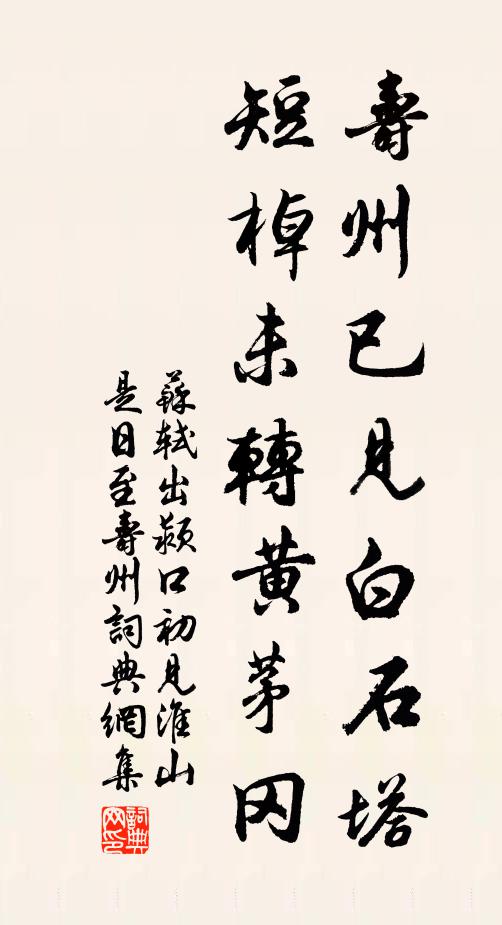 壽州已見白石塔
短棹未轉黃茅冈
蘇軾出颍口初見淮山
是日至壽州詞典網集
詞典网印